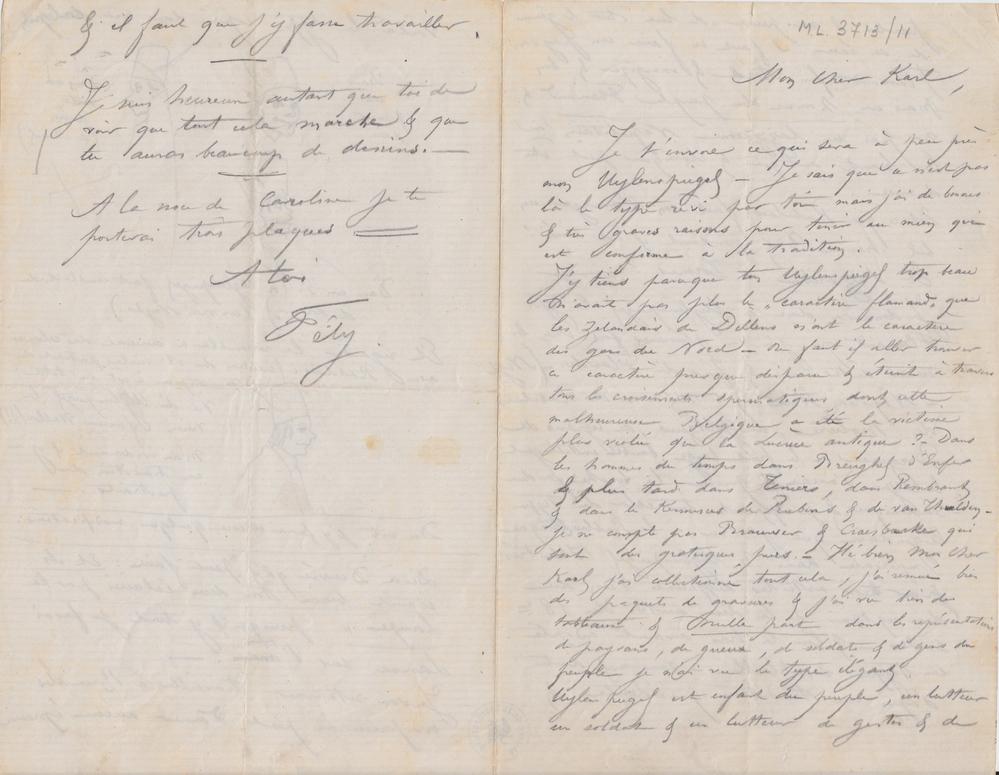 & il faut que j'y fasse travailler.
Je suis heureux autant que toi de
voir que tout cela marche & que
tu auras beaucoup de dessins. —
A la noce de Caroline je te
porterai trois plaques
A toi
Fély.
ML. 3713/11
Mon cher Karl,
Je t'envoie ce qui sera à peu près
mon Uylenspiegel — Je sais que ce n'est pas
là le type rêvé par toi mais j'ai de bonnes
& très graves raisons pour tenir au mien qui
est conforme à la tradition.
J'y tiens parceque ton Uylenspiegel trop beau
n'aurait pas plus le "caractère flamand" que
les Zélandais de Dillens n'ont le caractère
des gens du Nord — Où faut il aller trouver
ce caractère presque disparu & éteint à travers
tous les croisements spermatiques dont cette
malheureuse Belgique a été la victime
plus violée que la Lucrèce antique ? — Dans
les hommes du temps dans Breughel d'Enfer
& plus tard dans Teniers, dans Rembrandt
& dans les Kermesses de Rubens & de van Thulden —
je ne compte pas Brauwer & Craesbecke qui
sont des grotesques purs. — Hé bien mon cher
Karl j'ai collectionné tout cela, j'ai remué bien
des paquets de gravures & j'ai vu bien des
tableaux & nulle part dans les représentations
de paysans, de gueux, de soldats & de gens du
peuple je n'ai vu le type élégant.
Uylenspiegel est enfant du peuple, un lutteur
un soldat & un lutteur de gestes & de